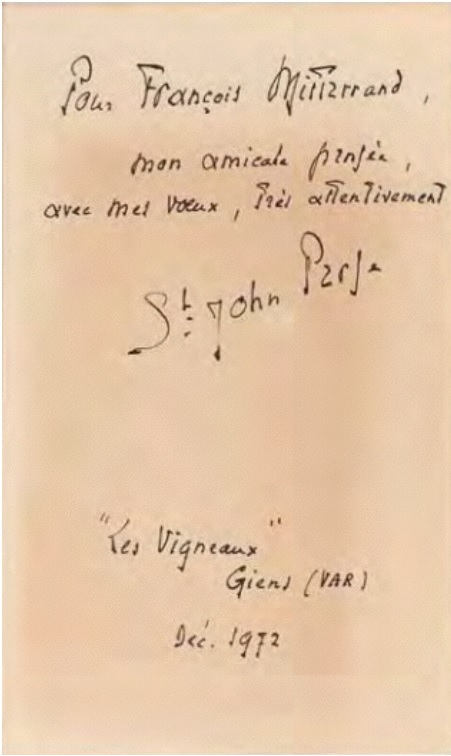 Pour François Mitterrand,
mon amicale pensée,
avec mes vœux, très attentivement
St. John Perse
"Les Vigneaux"
Giens (VAR)
Déc. 1972